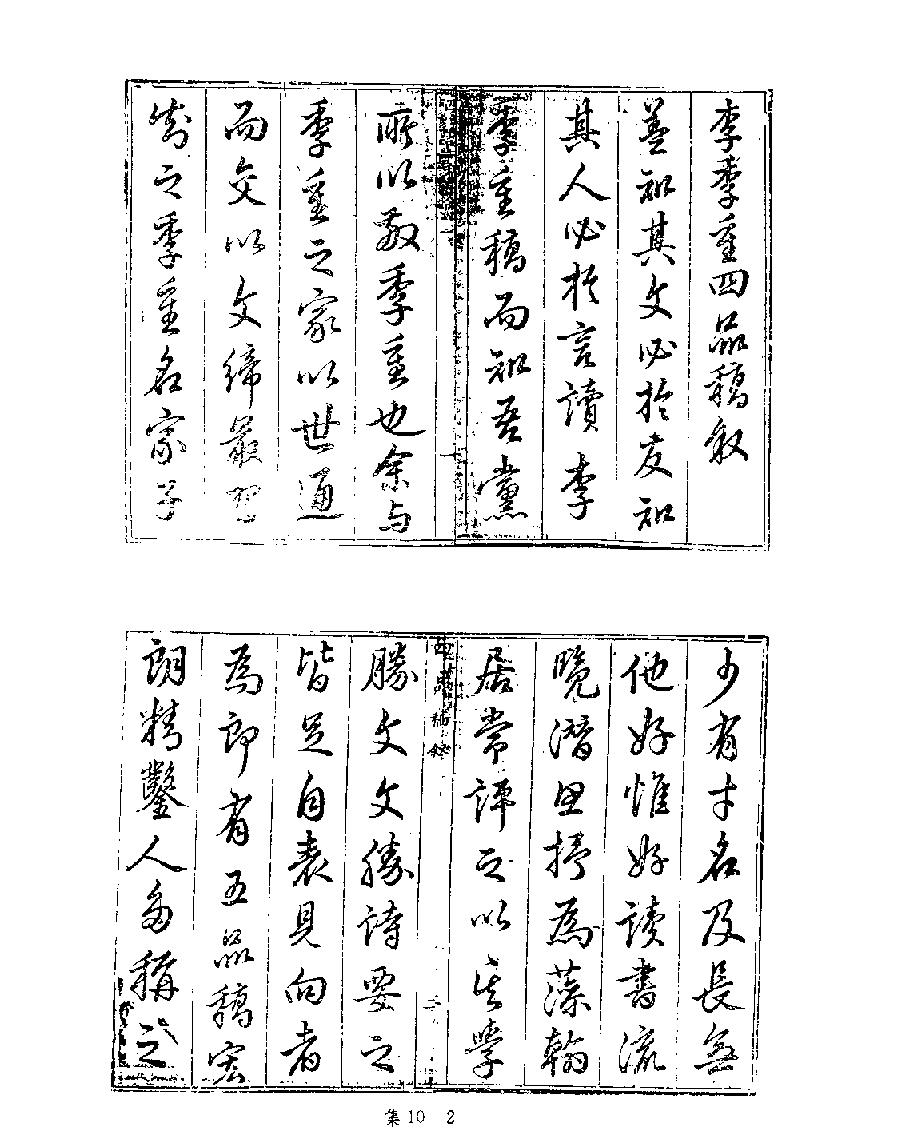 李季重四品稿敘
蓋知其文必於友知
其人必於言讀李
季重稿而知吾黨
所以敬季重也余与
季重之家以世通
而交以文締嚴
之季重名家子
少有才名及長無
他好惟好读書流
覽潛思抒為藻翰
居常評之以其學
勝文文勝詩要之
皆足自表見向者
為郎有五品稿宏
朗精鑿人多稱之
集10 2